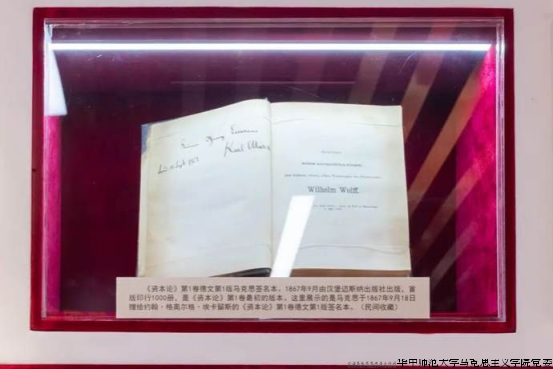 Karl Marx
Wilhelm Wolff.
《资本论》第1卷德文第1版马克思签名本。1867年9月由汉堡迈斯纳出版社出版，首
版印行1000册，是《资本论》第1卷最初的版本。这里展示的是马克思于1867年9月18日
赠给约翰·格奥尔格·埃卡留斯的《资本论》第1卷德文第1版签名本。（民间收藏）
华中师范大学马克思主义学院党委